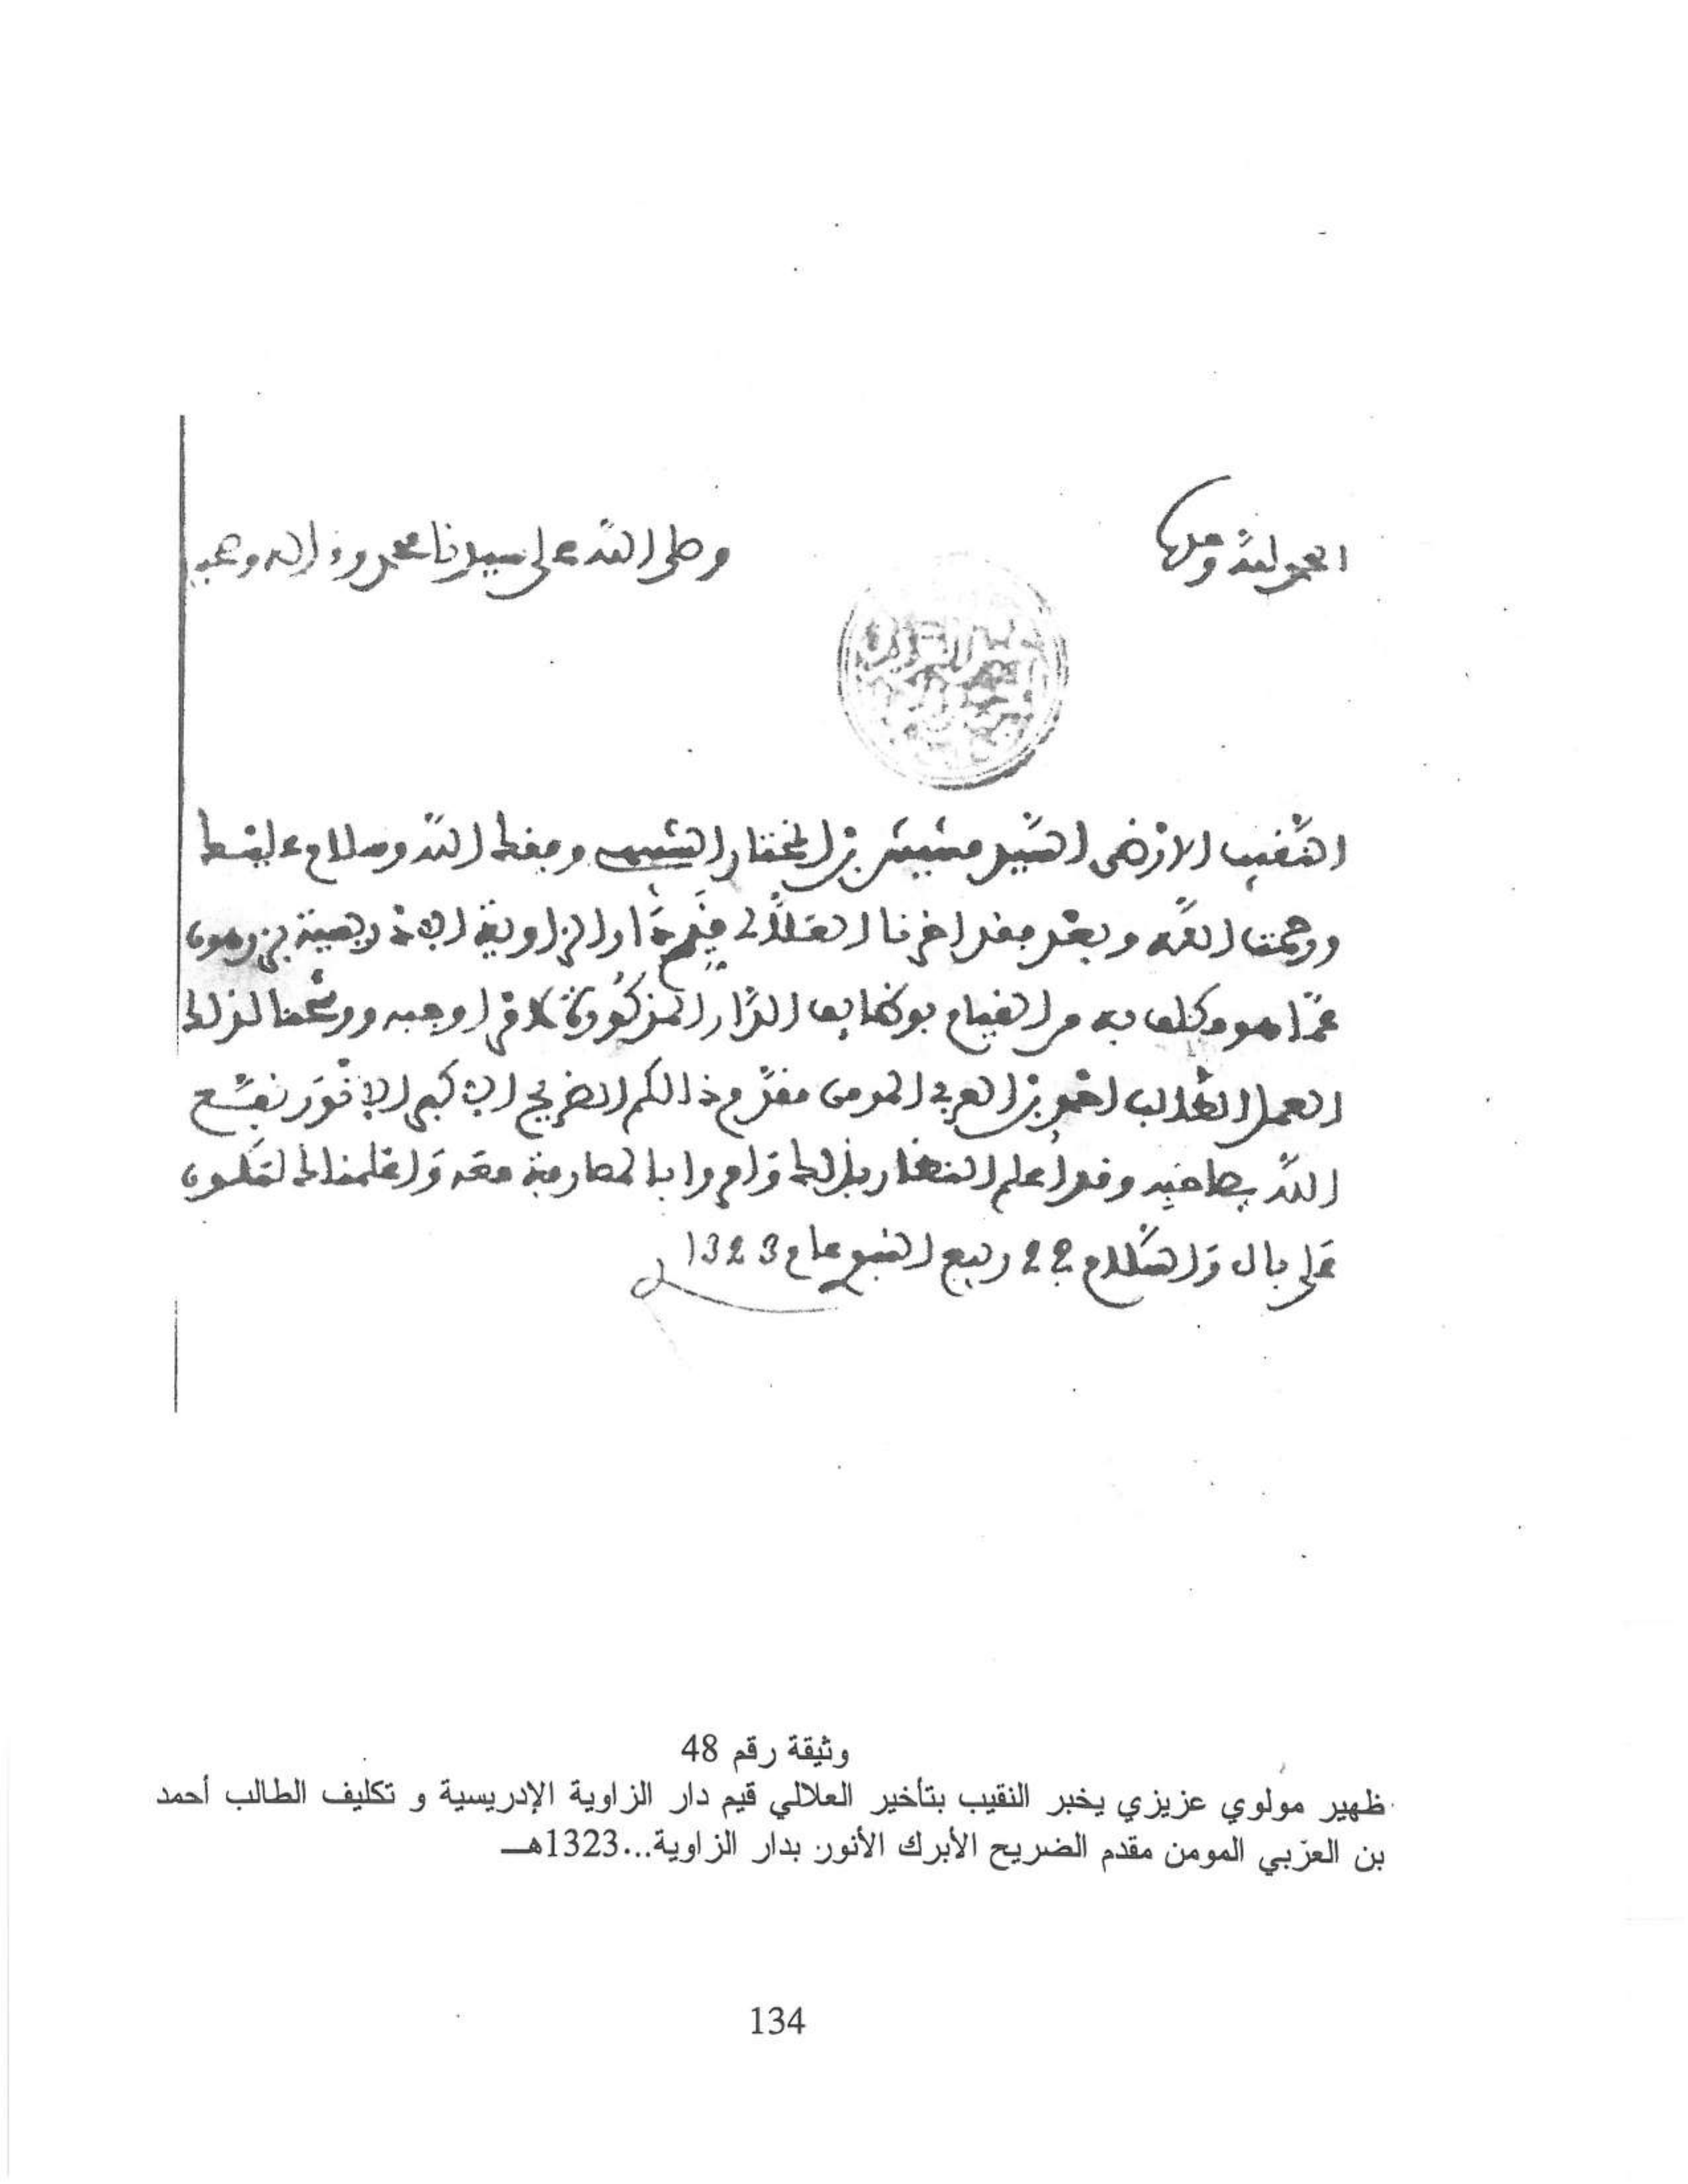 الحمد لله وحده
وصلى الله على سيدنا محمد وءاله وصحبه
النقيب الارضى السيد مشيش بن المختار الشبيهي وفقك الله وسلام عليك
ورحمت الله وبعد فقد اخرنا العلالي قيم دار الزاوية الادريسية بزرهون
عما هو مكلف به من القيام بوظايف الدار المذكورة لامر اوجبه ورشحنا لذلك
العمل الطالب احمد بن العربي المومن مقدم ذالكم الضريح الابرك الانور نفع
الله بصاحبه وقد اعلم النظار بذلك وامروا بالمصارفة معه واعلمناك لتكون
على بال والسلام 22 ربيع النبوي عام 1323
وثيقة رقم 48
ظهير مولوي عزيزي يخبر النقيب بتأخير العلالي قيم دار الزاوية الإدريسية و تكليف الطالب أحمد
بن العربي المومن مقدم الضريح الأبرك الأنور بدار الزاوية...1323هـ
134